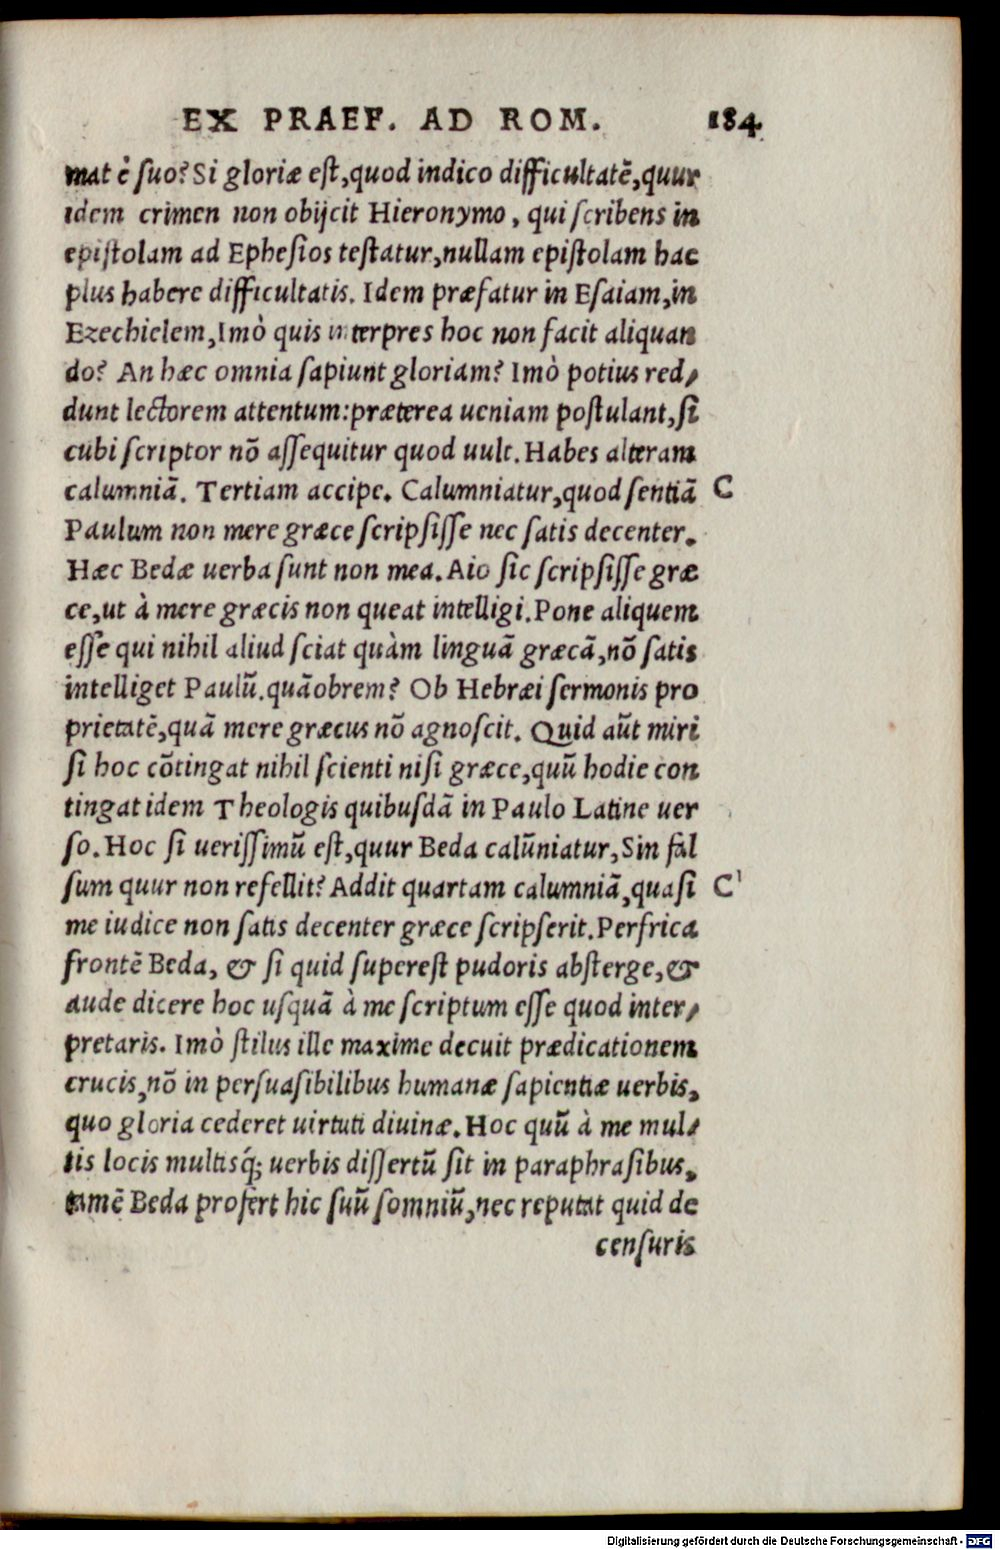 EX PRAEF. AD ROM. 184
mat è suo? Si gloriæ est, quod indico difficultatē, quur
idem crimen non obijcit Hieronymo, qui scribens in
epistolam ad Ephesios testatur, nullam epistolam hac
plus habere difficultatis. Idem præfatur in Esaiam, in
Ezechielem, Imò quis interpres hoc non facit aliquan
do? An hæc omnia sapiunt gloriam? Imò potius red⸗
dunt lectorem attentum: præterea ueniam postulant, si
cubi scriptor nō assequitur quod uult. Habes alteram
calumniā. Tertiam accipe. Calumniatur, quod sentiā C
Paulum non mere græce scripsisse nec satis decenter.
Hæc Bedæ uerba sunt non mea. Aio sic scripsisse græ
ce, ut à mere græcis non queat intelligi. Pone aliquem
esse qui nihil aliud sciat quàm linguā græcā, nō satis
intelliget Paulū. quāobrem? Ob Hebræi sermonis pro
prietatē, quā mere græcus nō agnoscit. Quid aūt miri
si hoc cōtingat nihil scienti nisi græce, quū hodie con
tingat idem Theologis quibusdā in Paulo Latine uer
so. Hoc si uerissimū est, quur Beda calūniatur, Sin fal
sum quur non refellit? Addit quartam calumniā, quasi C
me iudice non satis decenter græce scripserit. Perfrica
frontē Beda, & si quid superest pudoris absterge, &
aude dicere hoc usquā à me scriptum esse quod inter⸗
pretaris. Imò stilus ille maxime decuit prædicationem
crucis, nō in persuasibilibus humanæ sapientiæ uerbis,
quo gloria cederet uirtuti diuinæ. Hoc quū à me mul⸗
tis locis multisq́; uerbis dissertū sit in paraphrasibus,
tamē Beda profert hic suū somniū, nec reputat quid de
censuris
Digitalisierung gefördert durch die Deutsche Forschungsgemeinschaft - DFG